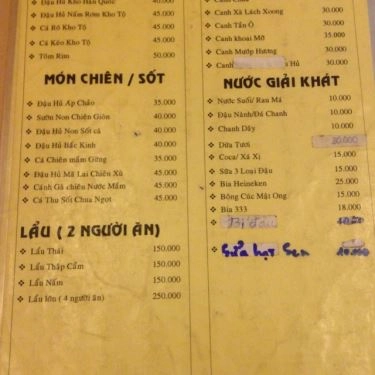 Đậu Hủ Kho Hàn Quốc 40.000
Đậu Hủ Nấm Rơm Kho Tộ 40.000
Cá Rô Kho Tộ 45.000
Cá Kéo Kho Tộ 45.000
Tôm Rim 50.000
MÓN CHIÊN / SỐT
Đậu Hủ Áp Chảo 35.000
Sườn Non Chiên Giòn 40.000
Đậu Hủ Non Sốt cà 40.000
Đậu Hủ Bắc Kinh 40.000
Cá Chiên mắm Gừng 35.000
Đậu Hủ Mã Lai Chiên Xù 45.000
Cánh Gà chiên Nước Mắm 45.000
Cá Thu Sốt Chua Ngọt 45.000
LẨU ( 2 NGƯỜI ĂN)
Lẩu Thái 150.000
Lẩu Thập Cẩm 150.000
Lẩu Nấm 150.000
Lẩu lớn ( 4 người ăn) 250.000
Canh Chua
Canh Xà Lách Xoong 30.000
Canh Tần Ô 30.000
Canh khoai Mỡ 35.000
Canh Mướp Hương 30.000
Canh Hủ 30.000
NƯỚC GIẢI KHÁT
Nước Suối/ Rau Má 10.000
Đậu Nành/Đá Chanh 10.000
Chanh Dây 10.000
Dừa Tươi 20.000
Coca/ Xá Xị 15.000
Sữa 3 Loại Đậu 15.000
Bia Heineken 25.000
Bông Cúc Mật Ong 15.000
Bia 333 18.000
Sữa hạt Sen